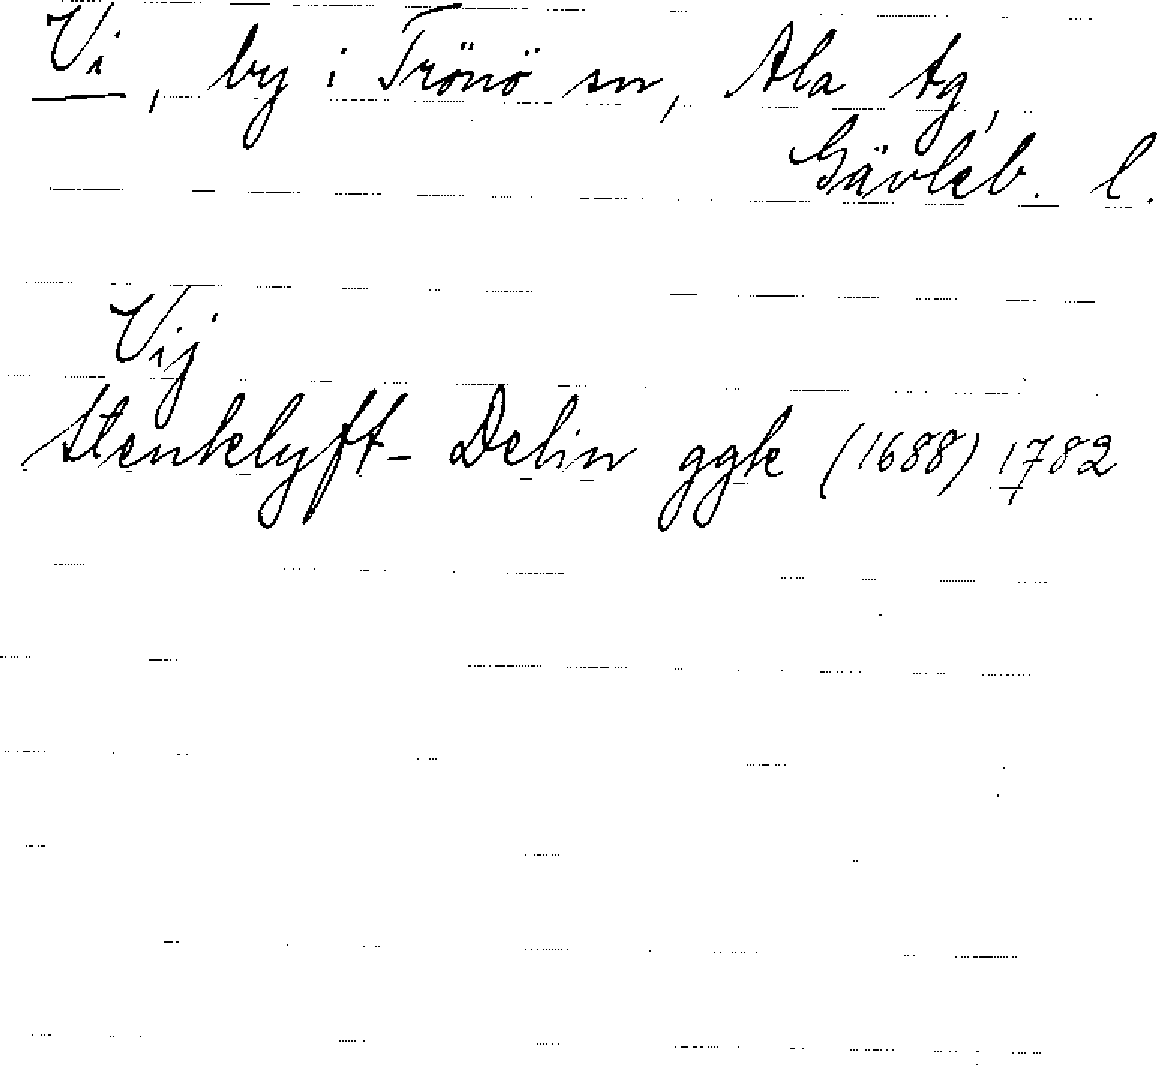 Vi, by i Trönö sn, Ala tg,
Gävleb. l.
Vij
Stenklyft-Delin ggk (1688) 1782